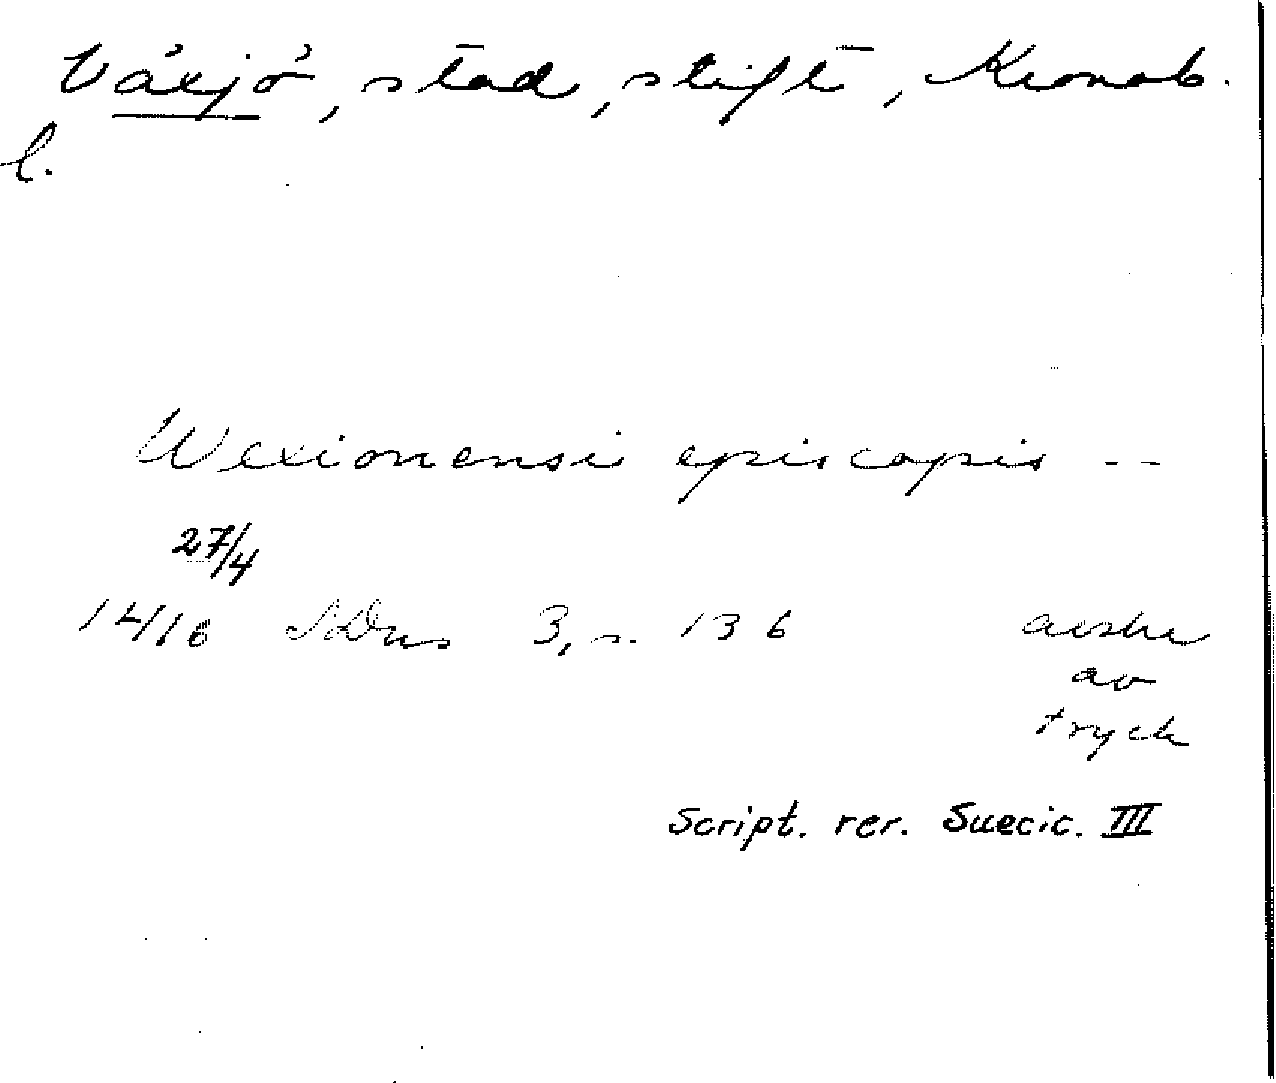 Växjö, stad, stift, Kronob.
l.
Wexionensi episcopis --
27/4
1416 SDns 3, s. 136
av
tryck
Script. rer. Suecic. III